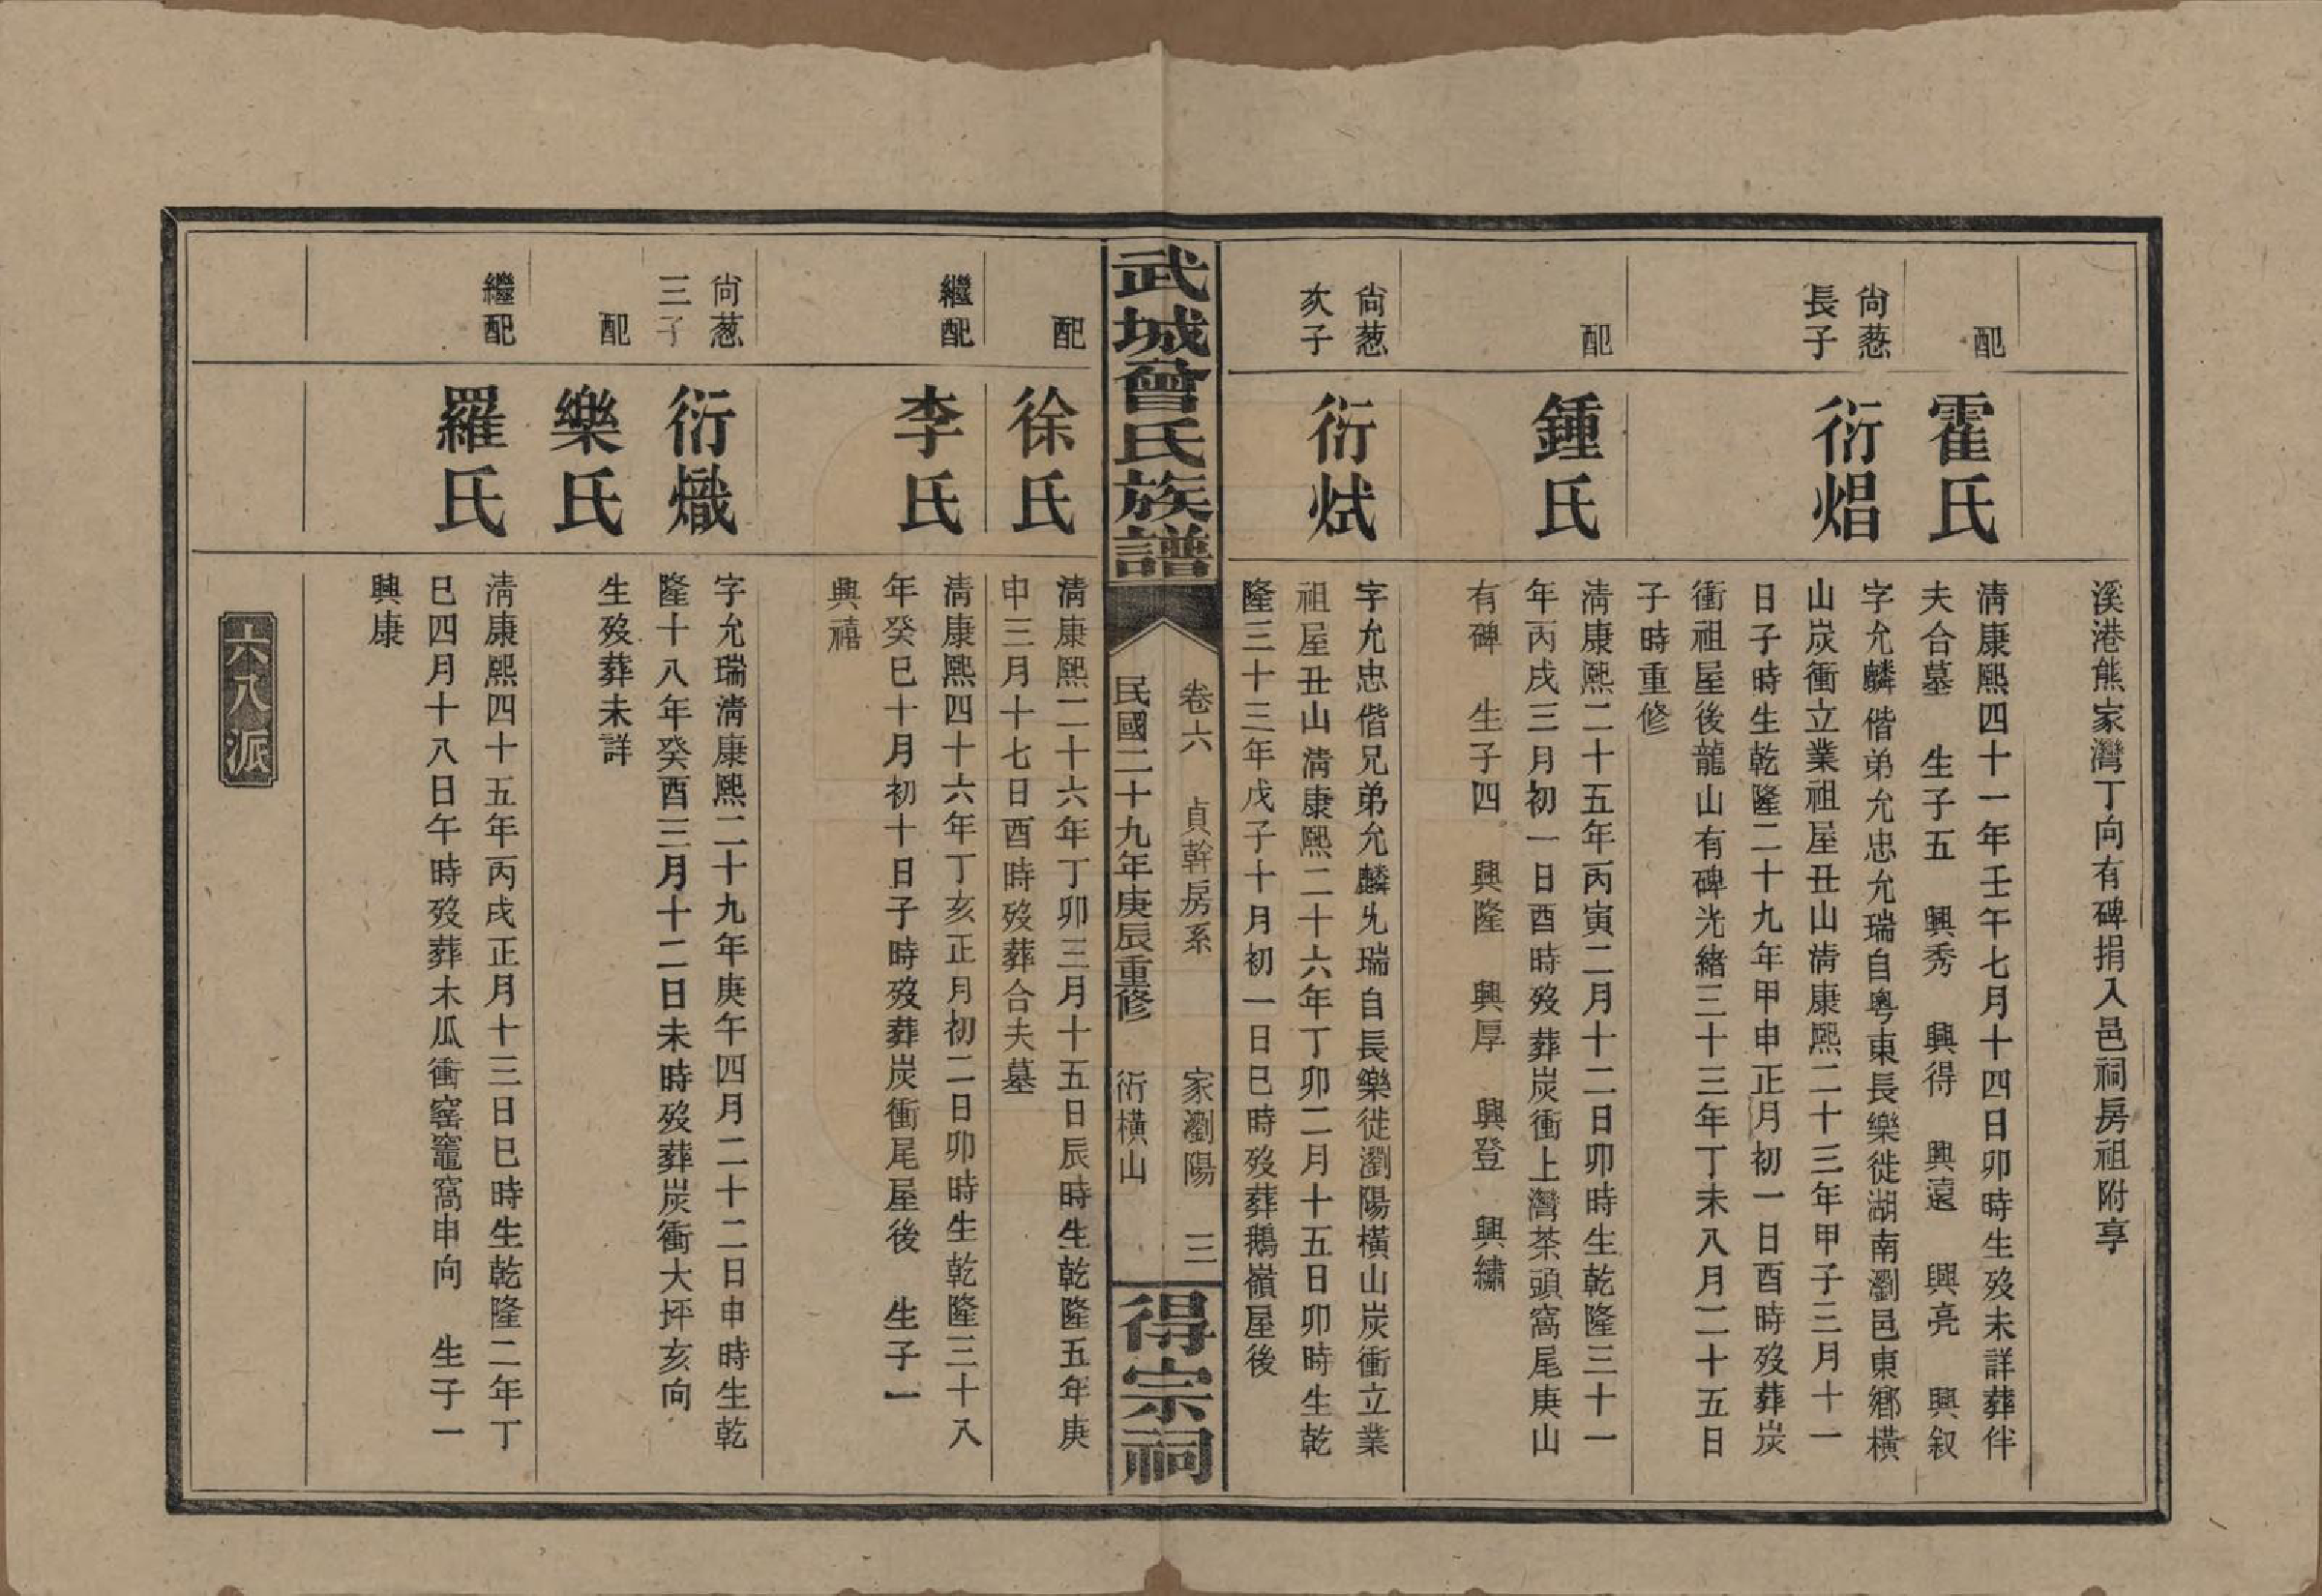 溪港熊家灣丁向有碑捐入邑祠房祖附享
配
霍氏
淸康熙四十一年壬午七月十四日卯時生歿未詳葬伴
夫合墓　生子五　興秀　興得　興遠　興亮　興叙
尙葱
長子
衍焻
字允麟偕弟允忠允瑞自粤東長樂徙湖南瀏邑東鄉橫
山炭衝立業祖屋丑山淸康熙二十三年甲子三月十一
日子時生乾隆二十九年甲申正月初一日酉時歿葬炭
衝祖屋後龍山有碑光緒三十三年丁未八月二十五日
子時重修
配
鍾氏
淸康熙二十五年丙寅二月十二日卯時生乾隆三十一
年丙戌三月初一日酉時歿葬炭衝上灣茶頭窩尾庚山
有碑　生子四　興隆　興厚　興登　興繡
尙葱
次子
衍烒
字允忠偕兄弟允麟允瑞自長樂徙瀏陽橫山炭衝立業
祖屋丑山淸康熙二十六年丁卯二月十五日卯時生乾
隆三十三年戊子十月初一日巳時歿葬鵝嶺屋後
武城曾氏族譜
卷六　貞幹房系　家瀏陽　三
民國二十九年庚辰重修　衍橫山
得宗祠
配
徐氏
淸康熙二十六年丁卯三月十五日辰時生乾隆五年庚
申三月十七日酉時歿葬合夫墓
繼配
李氏
淸康熙四十六年丁亥正月初二日卯時生乾隆三十八
年癸巳十月初十日子時歿葬炭衝尾屋後　生子一
興禧
尙葱
三子
衍熾
字允瑞淸康熙二十九年庚午四月二十二日申時生乾
隆十八年癸酉三月十二日未時歿葬炭衝大坪亥向
配
樂氏
生歿葬未詳
繼配
羅氏
淸康熙四十五年丙戌正月十三日巳時生乾隆二年丁
巳四月十八日午時歿葬木瓜衝窰竈窩申向　生子一
興康
六八派